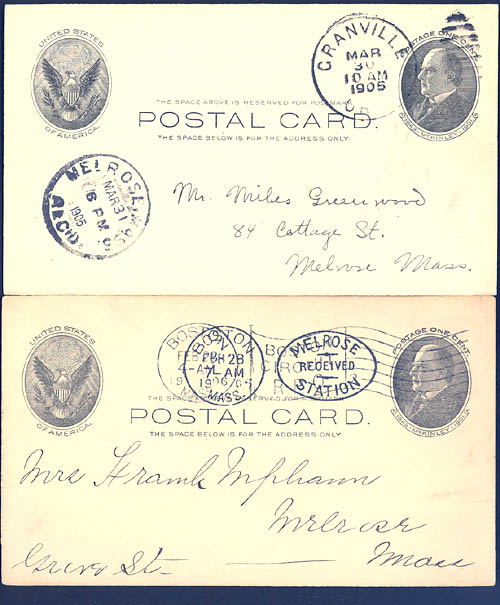 UNITED STATES
OF AMERICA.
GRANVILLE
MAR
30
10 AM
1905
O.
POSTAGE ONE CENT.
1843. McKINLEY. 1901.
THE SPACE ABOVE IS RESERVED FOR POSTMARK.
POSTAL CARD.
THE SPACE BELOW IS FOR THE ADDRESS ONLY.
MELROSE, MASS.
MAR 31
6 PM
1905
REC'D.
Mr. Miles Greenwood
84 Cottage St.
Melrose Mass.
UNITED STATES
OF AMERICA.
BOSTON
FEB 28
4-AM
1906
MASS.
BOSTON
FEB 28
7 AM
1906
MASS.
MELROSE
RECEIVED
STATION
POSTAGE ONE CENT.
1843. McKINLEY. 1901.
THE SPACE ABOVE IS RESERVED FOR POSTMARK.
POSTAL CARD.
THE SPACE BELOW IS FOR THE ADDRESS ONLY.
Mrs Frank
Melrose
Grove St.
Mass